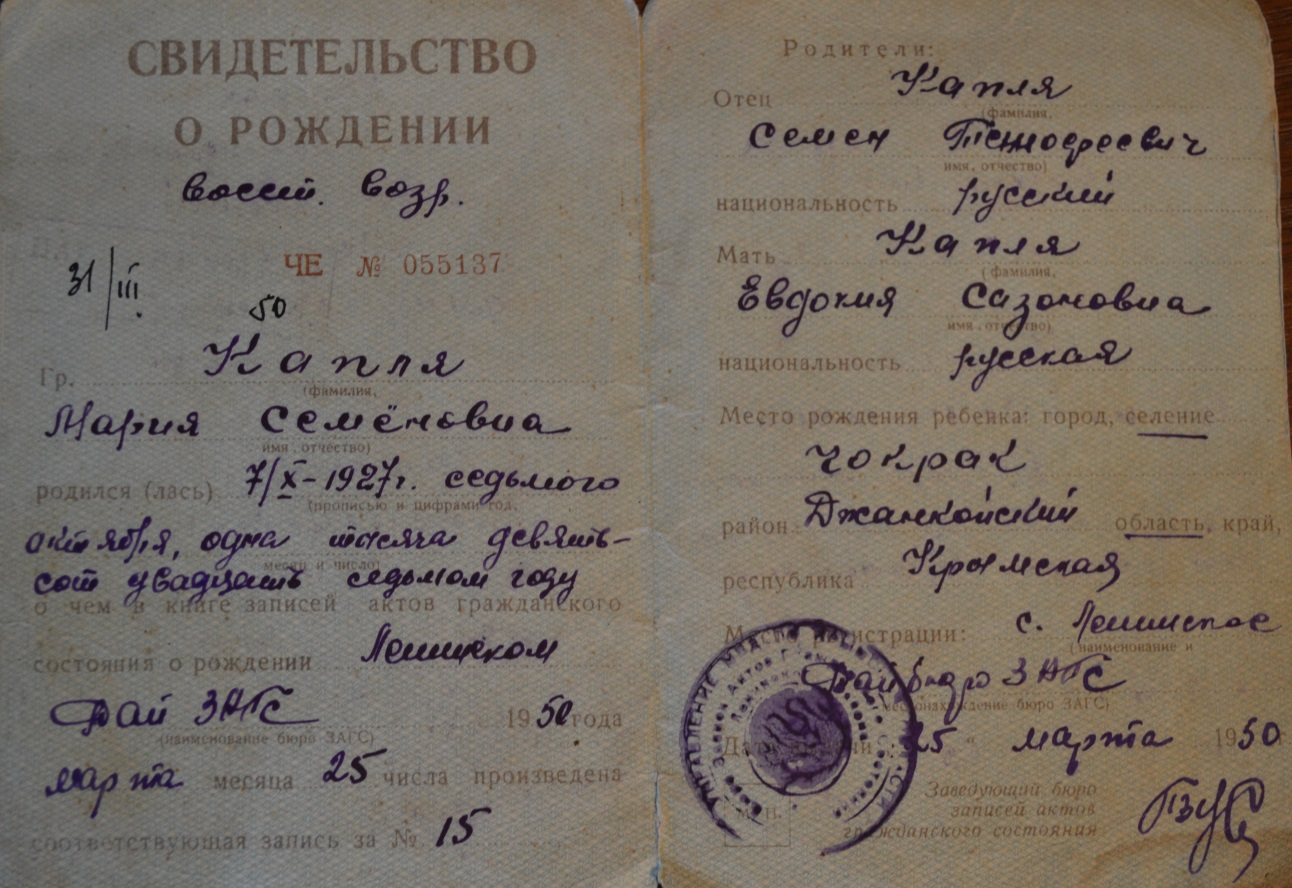 СВИДЕТЕЛЬСТВО
О РОЖДЕНИИ
восст. возр.
31/III.
50
ЧЕ № 055137
Гр. Капля
(фамилия,
Мария Семёновна
имя, отчество)
родился (лась) 7/X-1927г. седьмого
(прописью и цифрами год,
октября, одна тысяча девять-
месяц и число)
сот двадцать седьмом году
о чем в книге записей актов гражданского
состояния о рождении Ленинском
Рай ЗАГС 1950 года
(наименование бюро ЗАГС)
марта месяца 25 числа произведена
соответствующая запись за № 15
Родители:
Отец Капля
(фамилия,
Семен
имя, отчество)
национальность русский
Мать Капля
(фамилия,
Евдокия Сазоновна
имя, отчество)
национальность русская
Место рождения ребенка: город, селение
Чокрак
район Джанкойский область, край,
республика Крымская
Место регистрации: с. Ленинское
(наименование и
Райбюро ЗАГС
местонахождение бюро ЗАГС)
Дата выдачи "25" марта 1950 г
Заведующий бюро
записей актов
гражданского состояния
М. П.